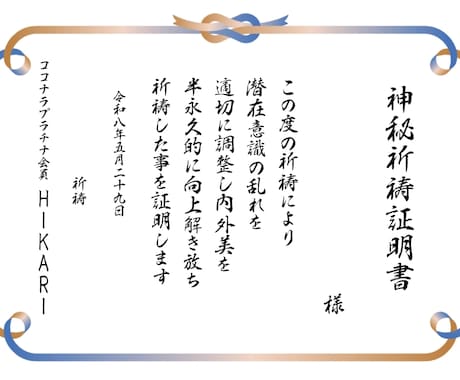 神秘祈祷証明書
様
この度の祈祷により
潜在意識の乱れを
適切に調整し内外美を
半永久的に向上解き放ち
祈祷した事を証明します
令和八年五月二十九日
祈祷
ココナラプラチナ会員 HIKARI